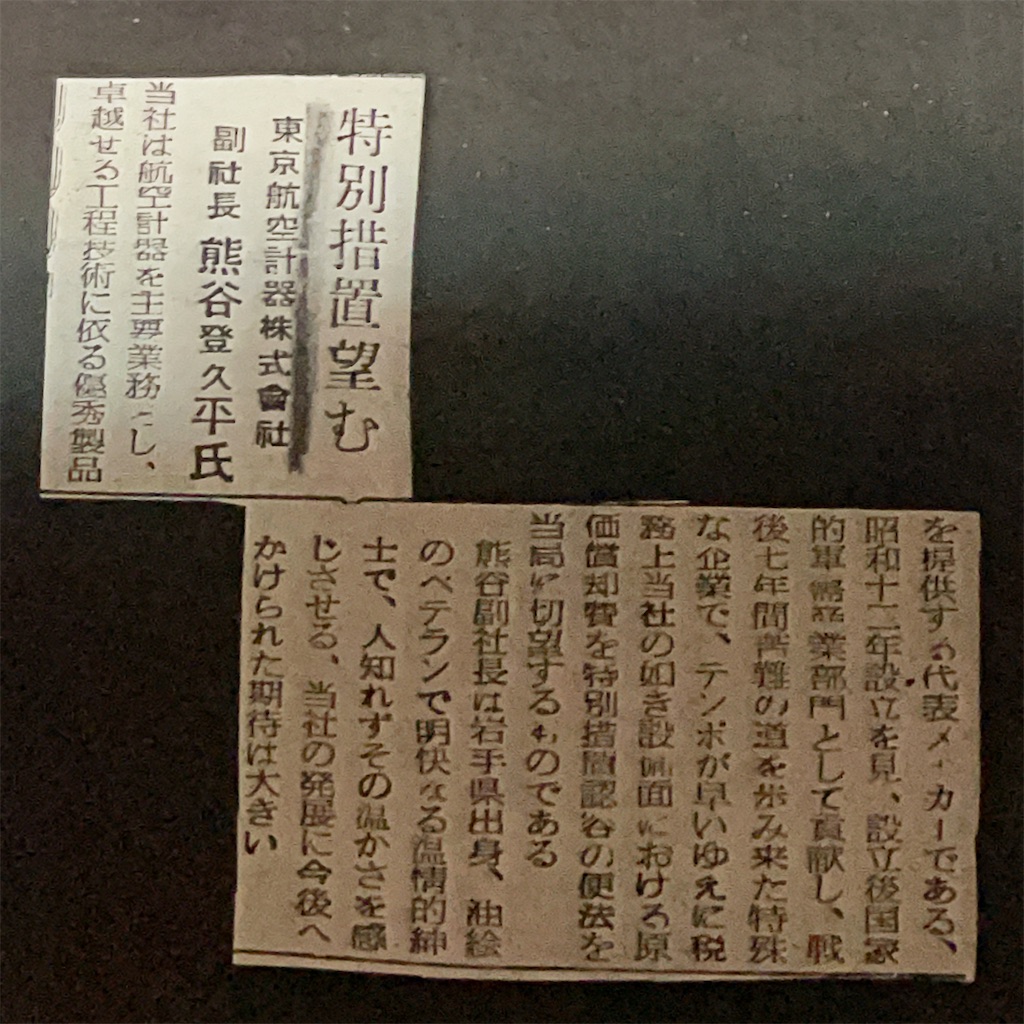 特別措置望む
東京航空計器株式會社
副社長 熊谷登久平氏
当社は航空計器を主要業務とし、
卓越せる工程技術に依る優秀製品
を提供する代表メーカーである、
昭和十二年設立を見、設立後国家
的軍需産業部門として貢献し、戦
後七年間苦難の道を歩み来た特殊
な企業で、テンポが早いゆえに税
務上当社の如き設備面における原
価償却費を特別措置認容の便法を
当局に切望するものである
熊谷副社長は岩手県出身、油絵
のベテランで明快なる温情的紳
士で、人知れずその温かさを感
じさせる、当社の発展に今後へ
かけられた期待は大きい